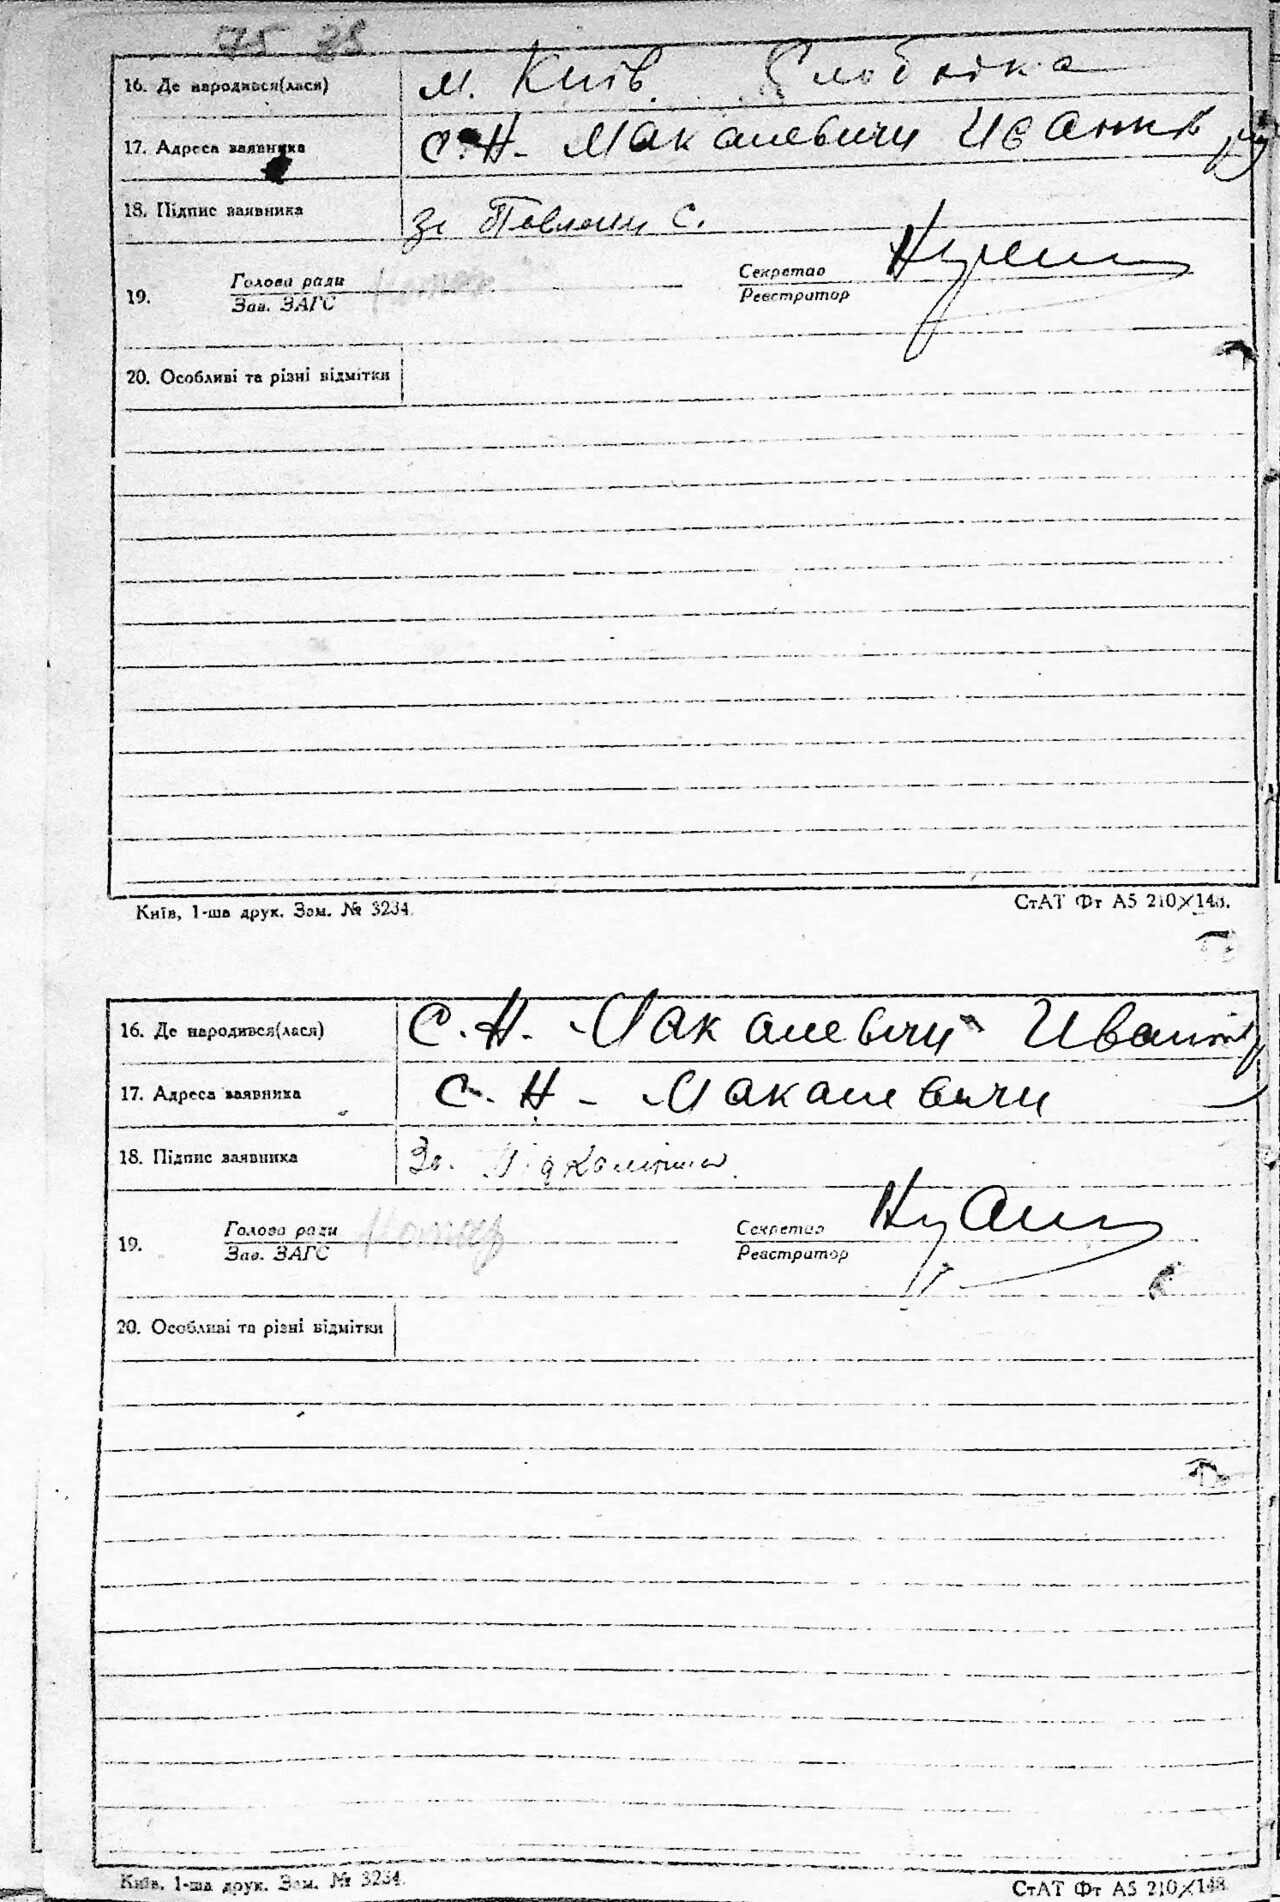 75 38
16. Де народився(лася) м. Київ Слобідка
17. Адреса заявника с. Н. Макалевичи Иванків
18. Підпис заявника за
19. Голова ради Секретар
Зав. ЗАГС Реєстратор
20. Особливі та різні відмітки
Київ, 1-ша друк. Зам. № 3234. СтАТ Фт А5 210×148.
16. Де народився(лася) с. Н. Макалевичи
17. Адреса заявника с. Н. Макалевичи
18. Підпис заявника За.
19. Голова ради Секретар
Зав. ЗАГС Реєстратор
20. Особливі та різні відмітки
Київ, 1-ша друк. Зам. № 3234. СтАТ Фт А5 210×148